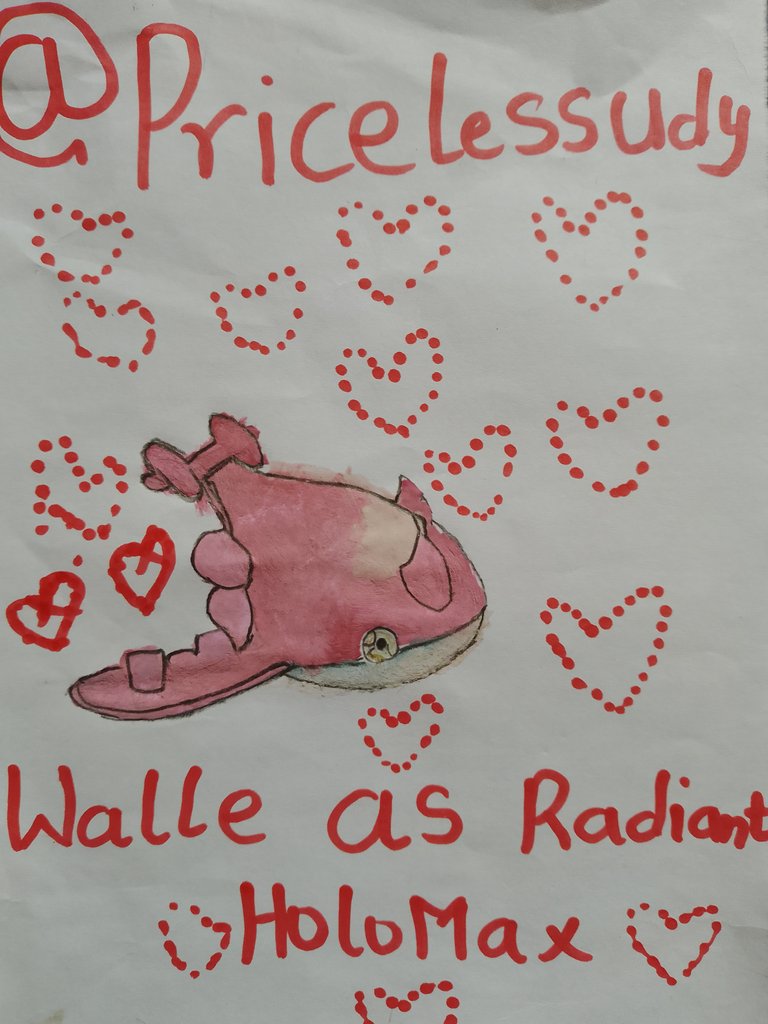 @Pricelessudy
Walle as Radiant
HoloMax